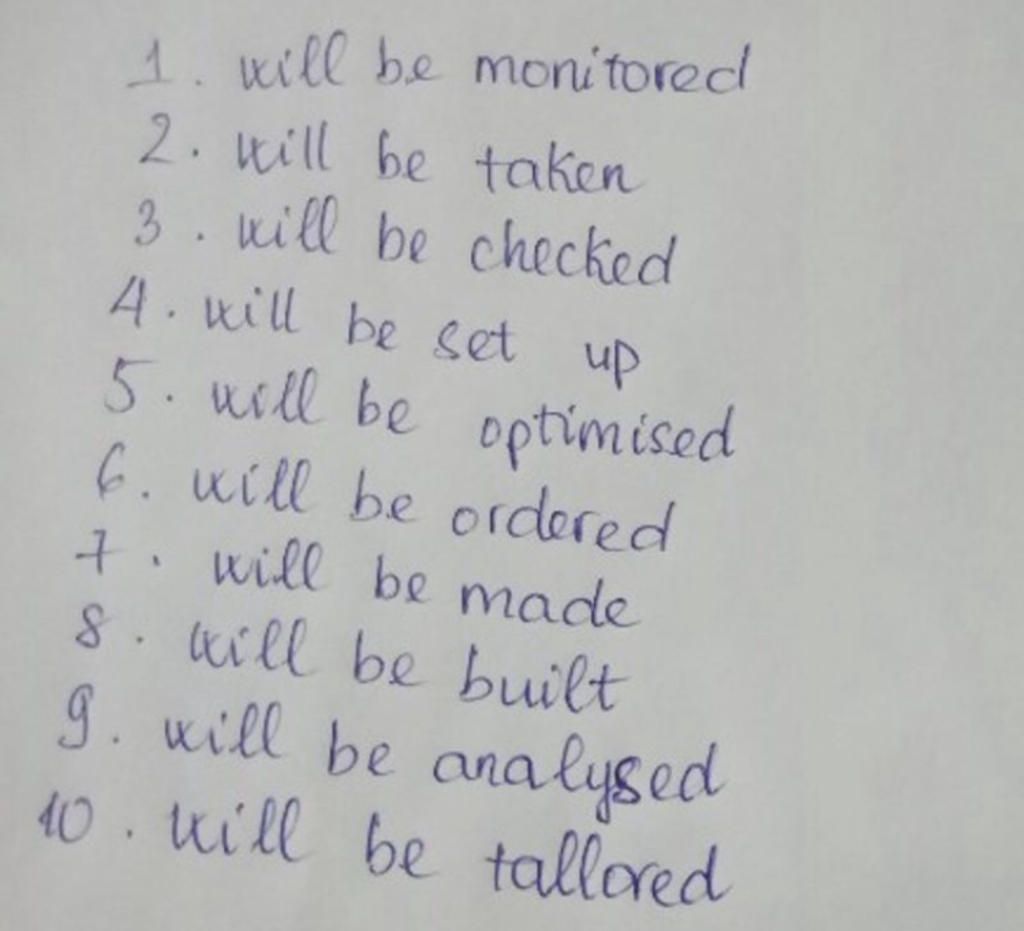 1. will be monitored
2. will be taken
3. will be checked
4. will be set up
5. will be optimised
6. will be ordered
7. will be made
8. will be built
9. will be analysed
10. will be tallored